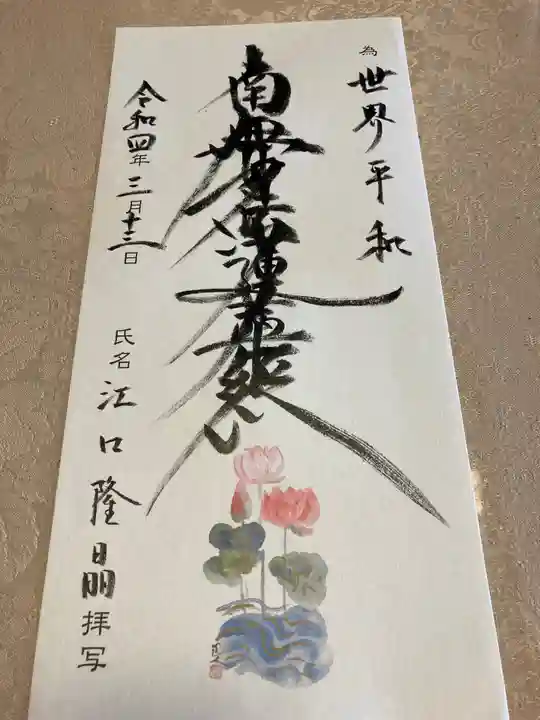 為 世界平和
南無妙法蓮華経
令和四年三月十三日
氏名 江口隆晶 拝写